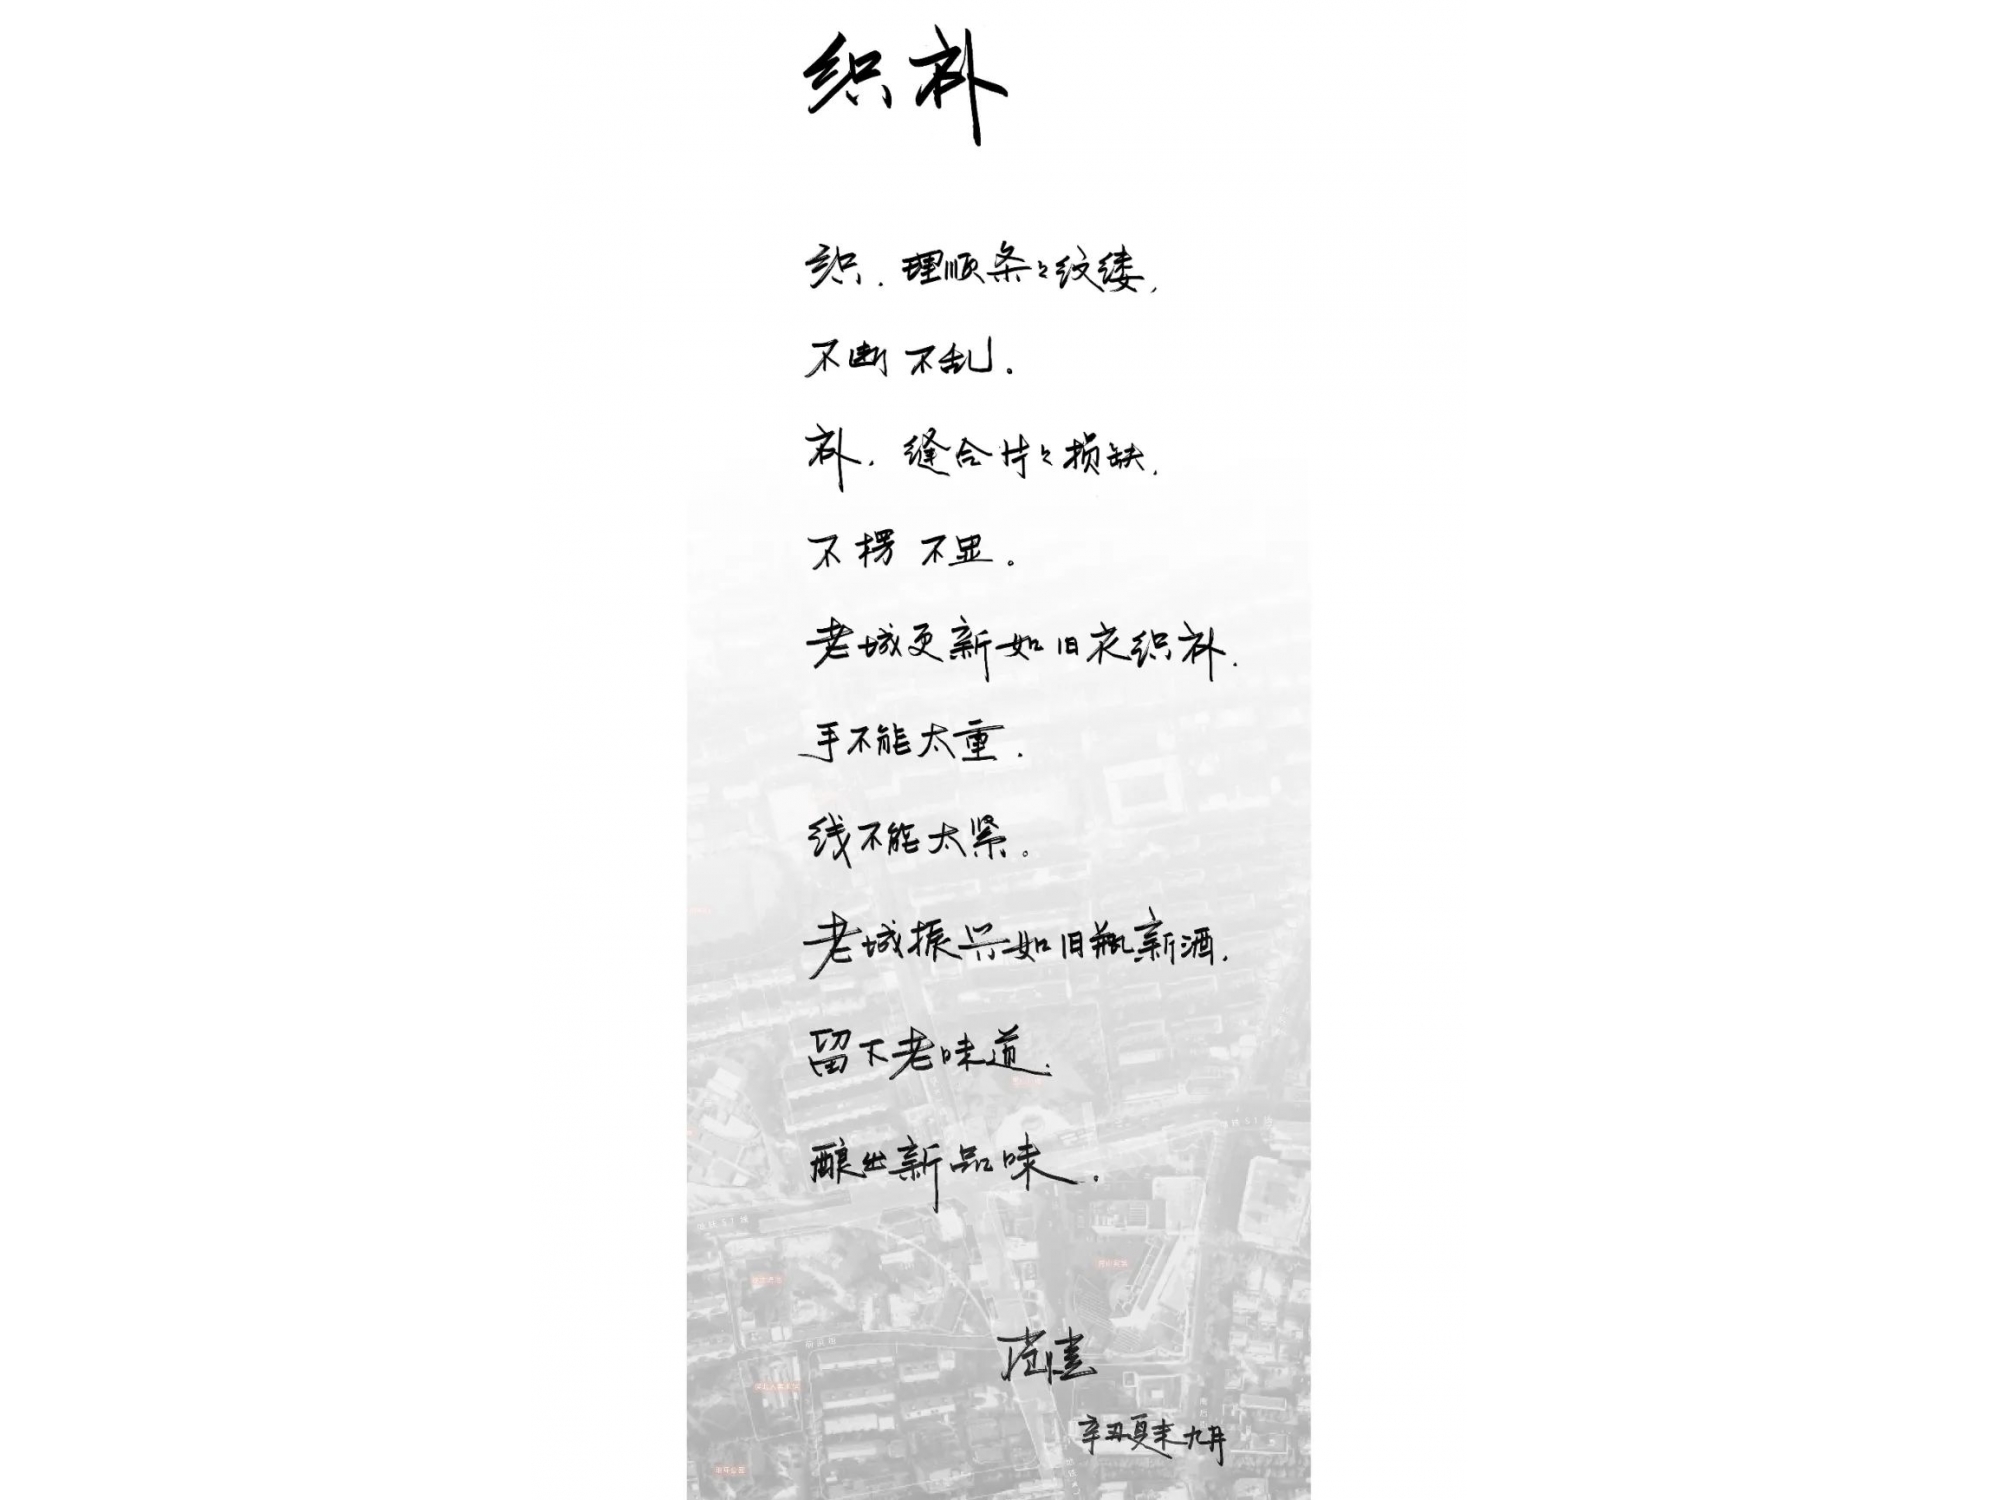 织补
织，理顺条々纹缕，
不断不乱。
补，缝合片々损缺，
不楞不显。
老城更新如旧衣织补，
手不能太重，
线不能太紧。
老城振兴如旧瓶新酒，
留下老味道，
酿出新品味。
辛丑夏末九月